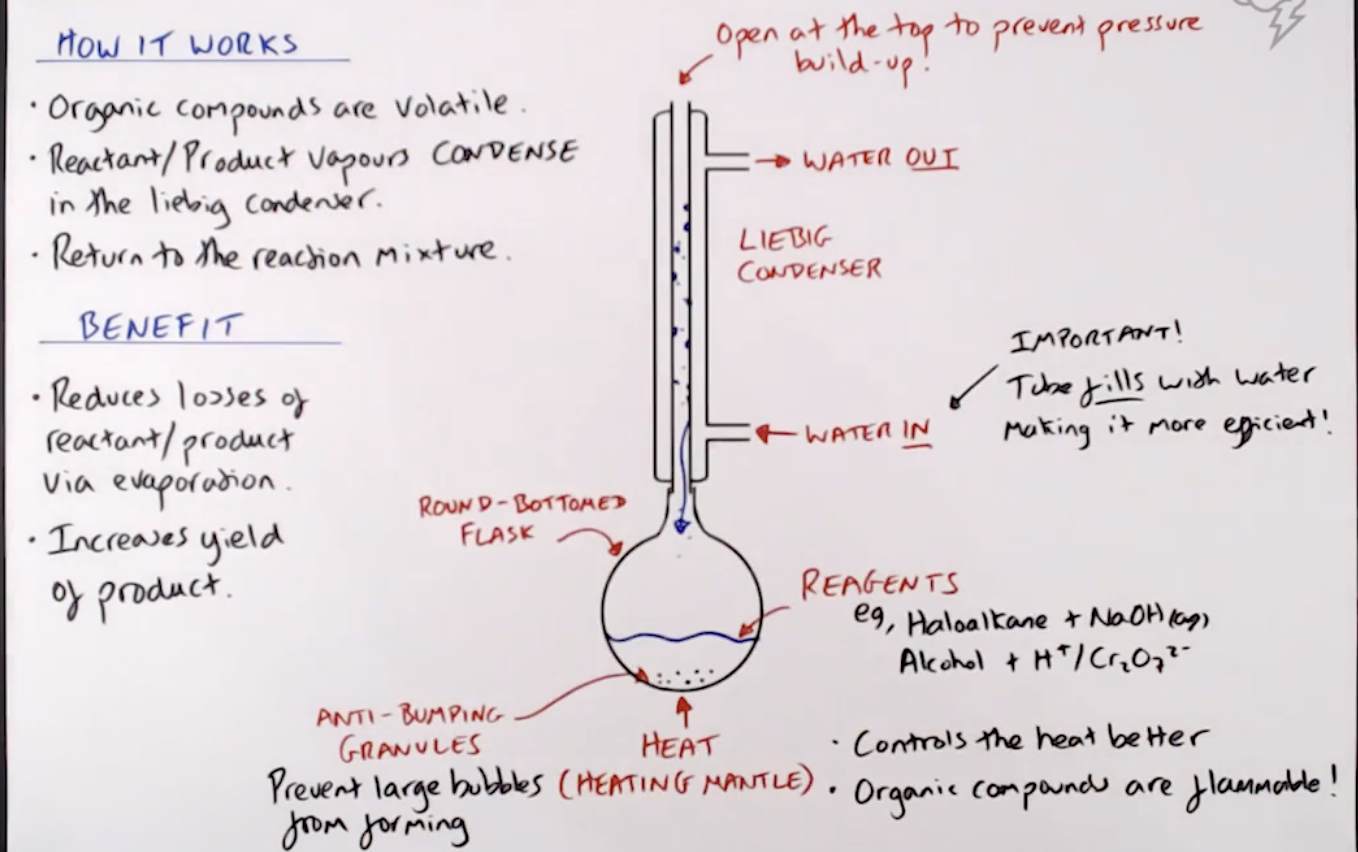 HOW IT WORKS
· Organic compounds are volatile.
· Reactant/Product vapours CONDENSE
in the liebig condenser.
· Return to the reaction mixture.
BENEFIT
· Reduces losses of
reactant/product
via evaporation.
· Increases yield
of product.
Open at the top to prevent pressure
build-up!
WATER OUT
LIEBIG
CONDENSER
IMPORTANT!
Tube fills with water
making it more efficient!
WATER IN
ROUND-BOTTOMED
FLASK
REAGENTS
eg, Haloalkane + NaOH(aq)
Alcohol + H⁺/Cr₂O₇²⁻
ANTI-BUMPING
GRANULES
Prevent large bubbles
from forming
HEAT
(HEATING MANTLE)
· Controls the heat better
· Organic compounds are flammable!